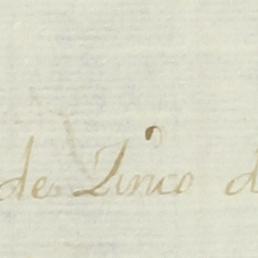 de Linco d